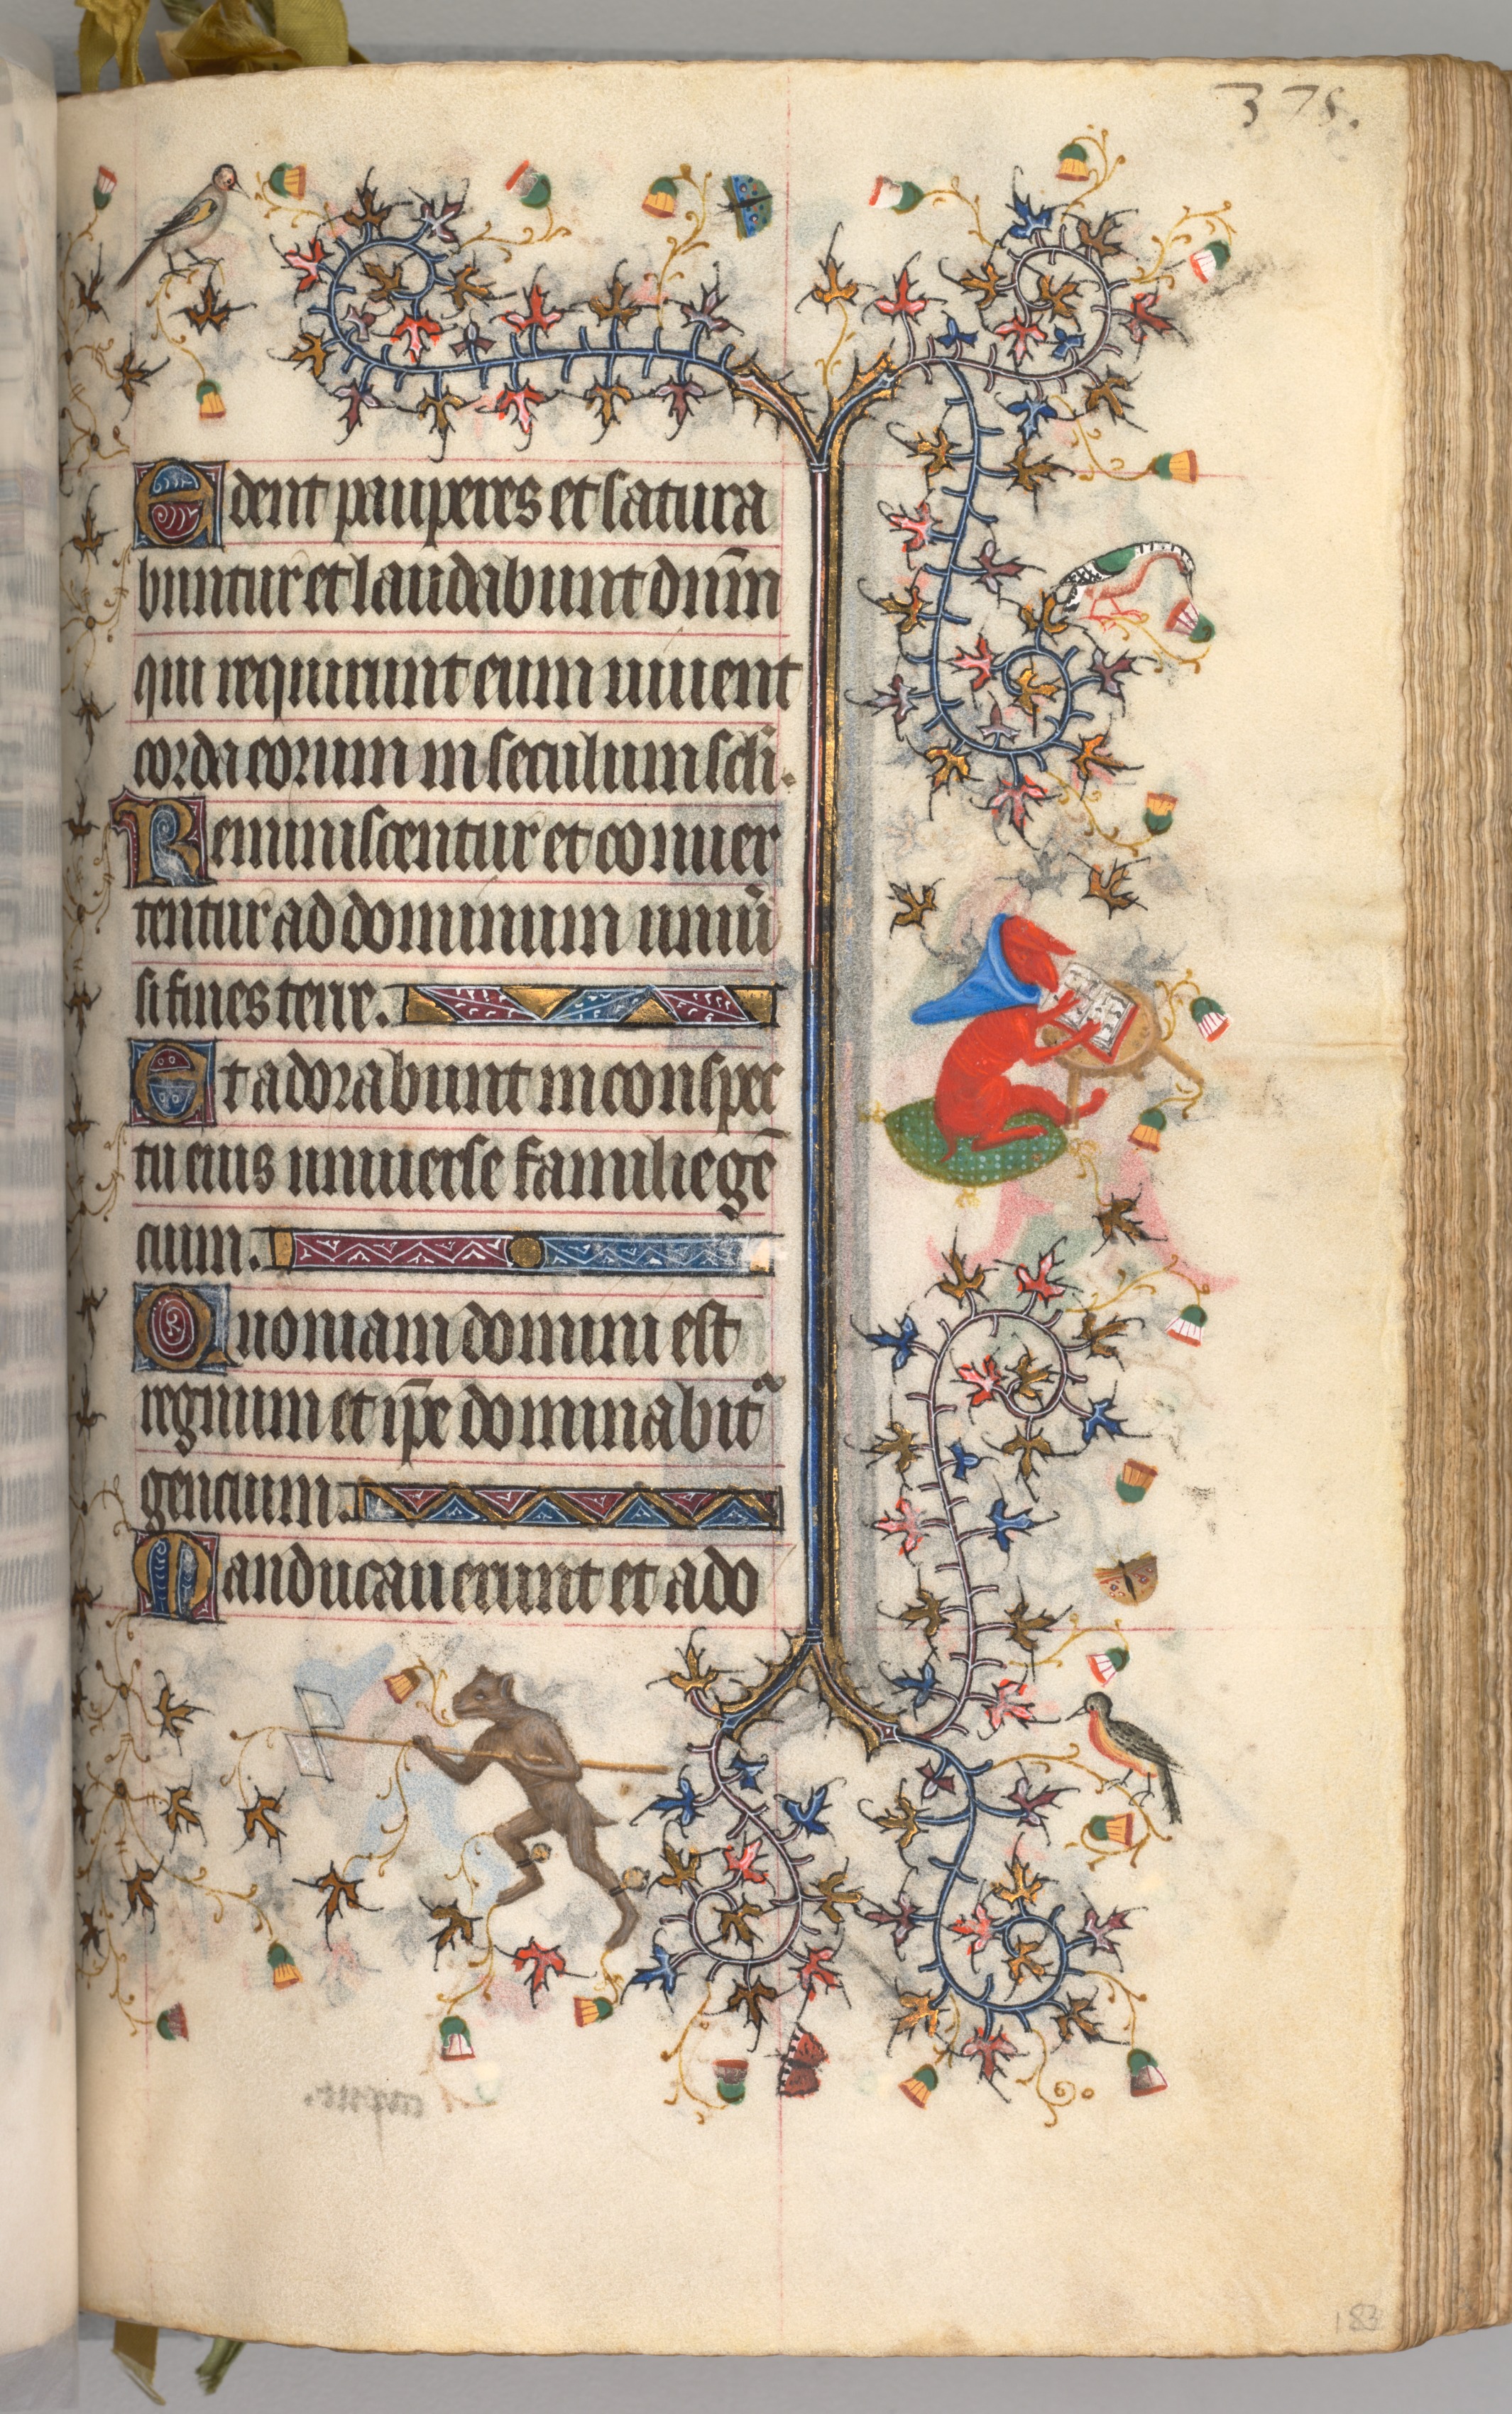 375.
Edent pauperes et satura
buntur et laudabunt dñm
qui requirunt eum uiuent
corda eorum in seculum scłi.
Reminiscentur et conuer
tentur ad dominum uniũ
si fines terre.
Et adorabunt in conspec
tu eius uniuerse familie gẽ
cium.
Quoniam domini est
regnum et ip̃e dominabit᷑
gencium.
Manducauerunt et ado
183